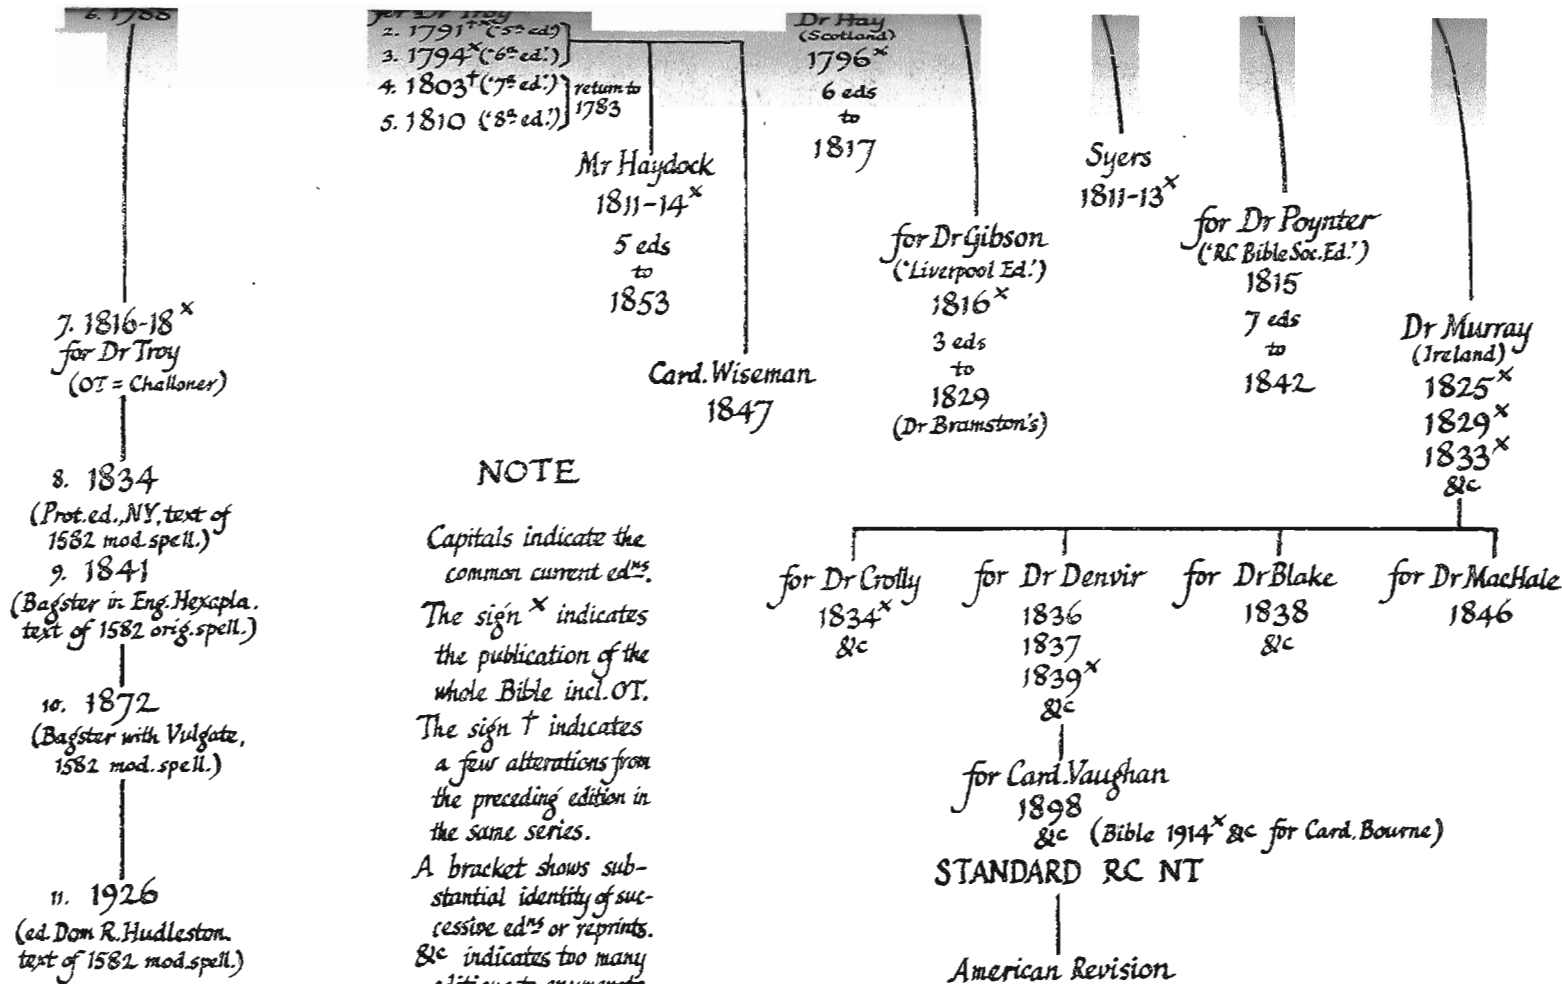 6. 1788
7. 1816-18ˣ
for Dr Troy
(OT = Challoner)
8. 1834
(Prot.ed.,NY,text of
1582 mod.spell.)
9. 1841
(Bagster in Eng.Hexapla.
text of 1582 orig.spell.)
10. 1872
(Bagster with Vulgate,
1582 mod.spell.)
11. 1926
(ed. Dom R.Hudleston.
text of 1582 mod.spell.)
for Dr Troy
2. 1791†ˣ ('5ᵗʰ ed.')
3. 1794ˣ ('6ᵗʰ ed.')
4. 1803† ('7ᵗʰ ed.')
5. 1810 ('8ᵗʰ ed.')
return to
1783
Mr Haydock
1811-14ˣ
5 eds
to
1853
Card. Wiseman
1847
NOTE
Capitals indicate the
common current edⁿˢ.
The sign ˣ indicates
the publication of the
whole Bible incl. OT.
The sign † indicates
a few alterations from
the preceding edition in
the same series.
A bracket shows sub-
stantial identity of suc-
cessive edⁿˢ or reprints.
&c indicates too many
editions to enumerate
Dr Hay
(Scotland)
1796ˣ
6 eds
to
1817
for Dr Gibson
('Liverpool Ed.')
1816ˣ
3 eds
to
1829
(Dr Bramston's)
Syers
1811-13ˣ
for Dr Poynter
('RC Bible Soc. Ed.')
1815
7 eds
to
1842
Dr Murray
(Ireland)
1825ˣ
1829ˣ
1833ˣ
&c
for Dr Crolly
1834ˣ
&c
for Dr Denvir
1836
1837
1839ˣ
&c
for Dr Blake
1838
&c
for Dr MacHale
1846
for Card. Vaughan
1898
&c (Bible 1914ˣ &c for Card. Bourne)
STANDARD RC NT
American Revision